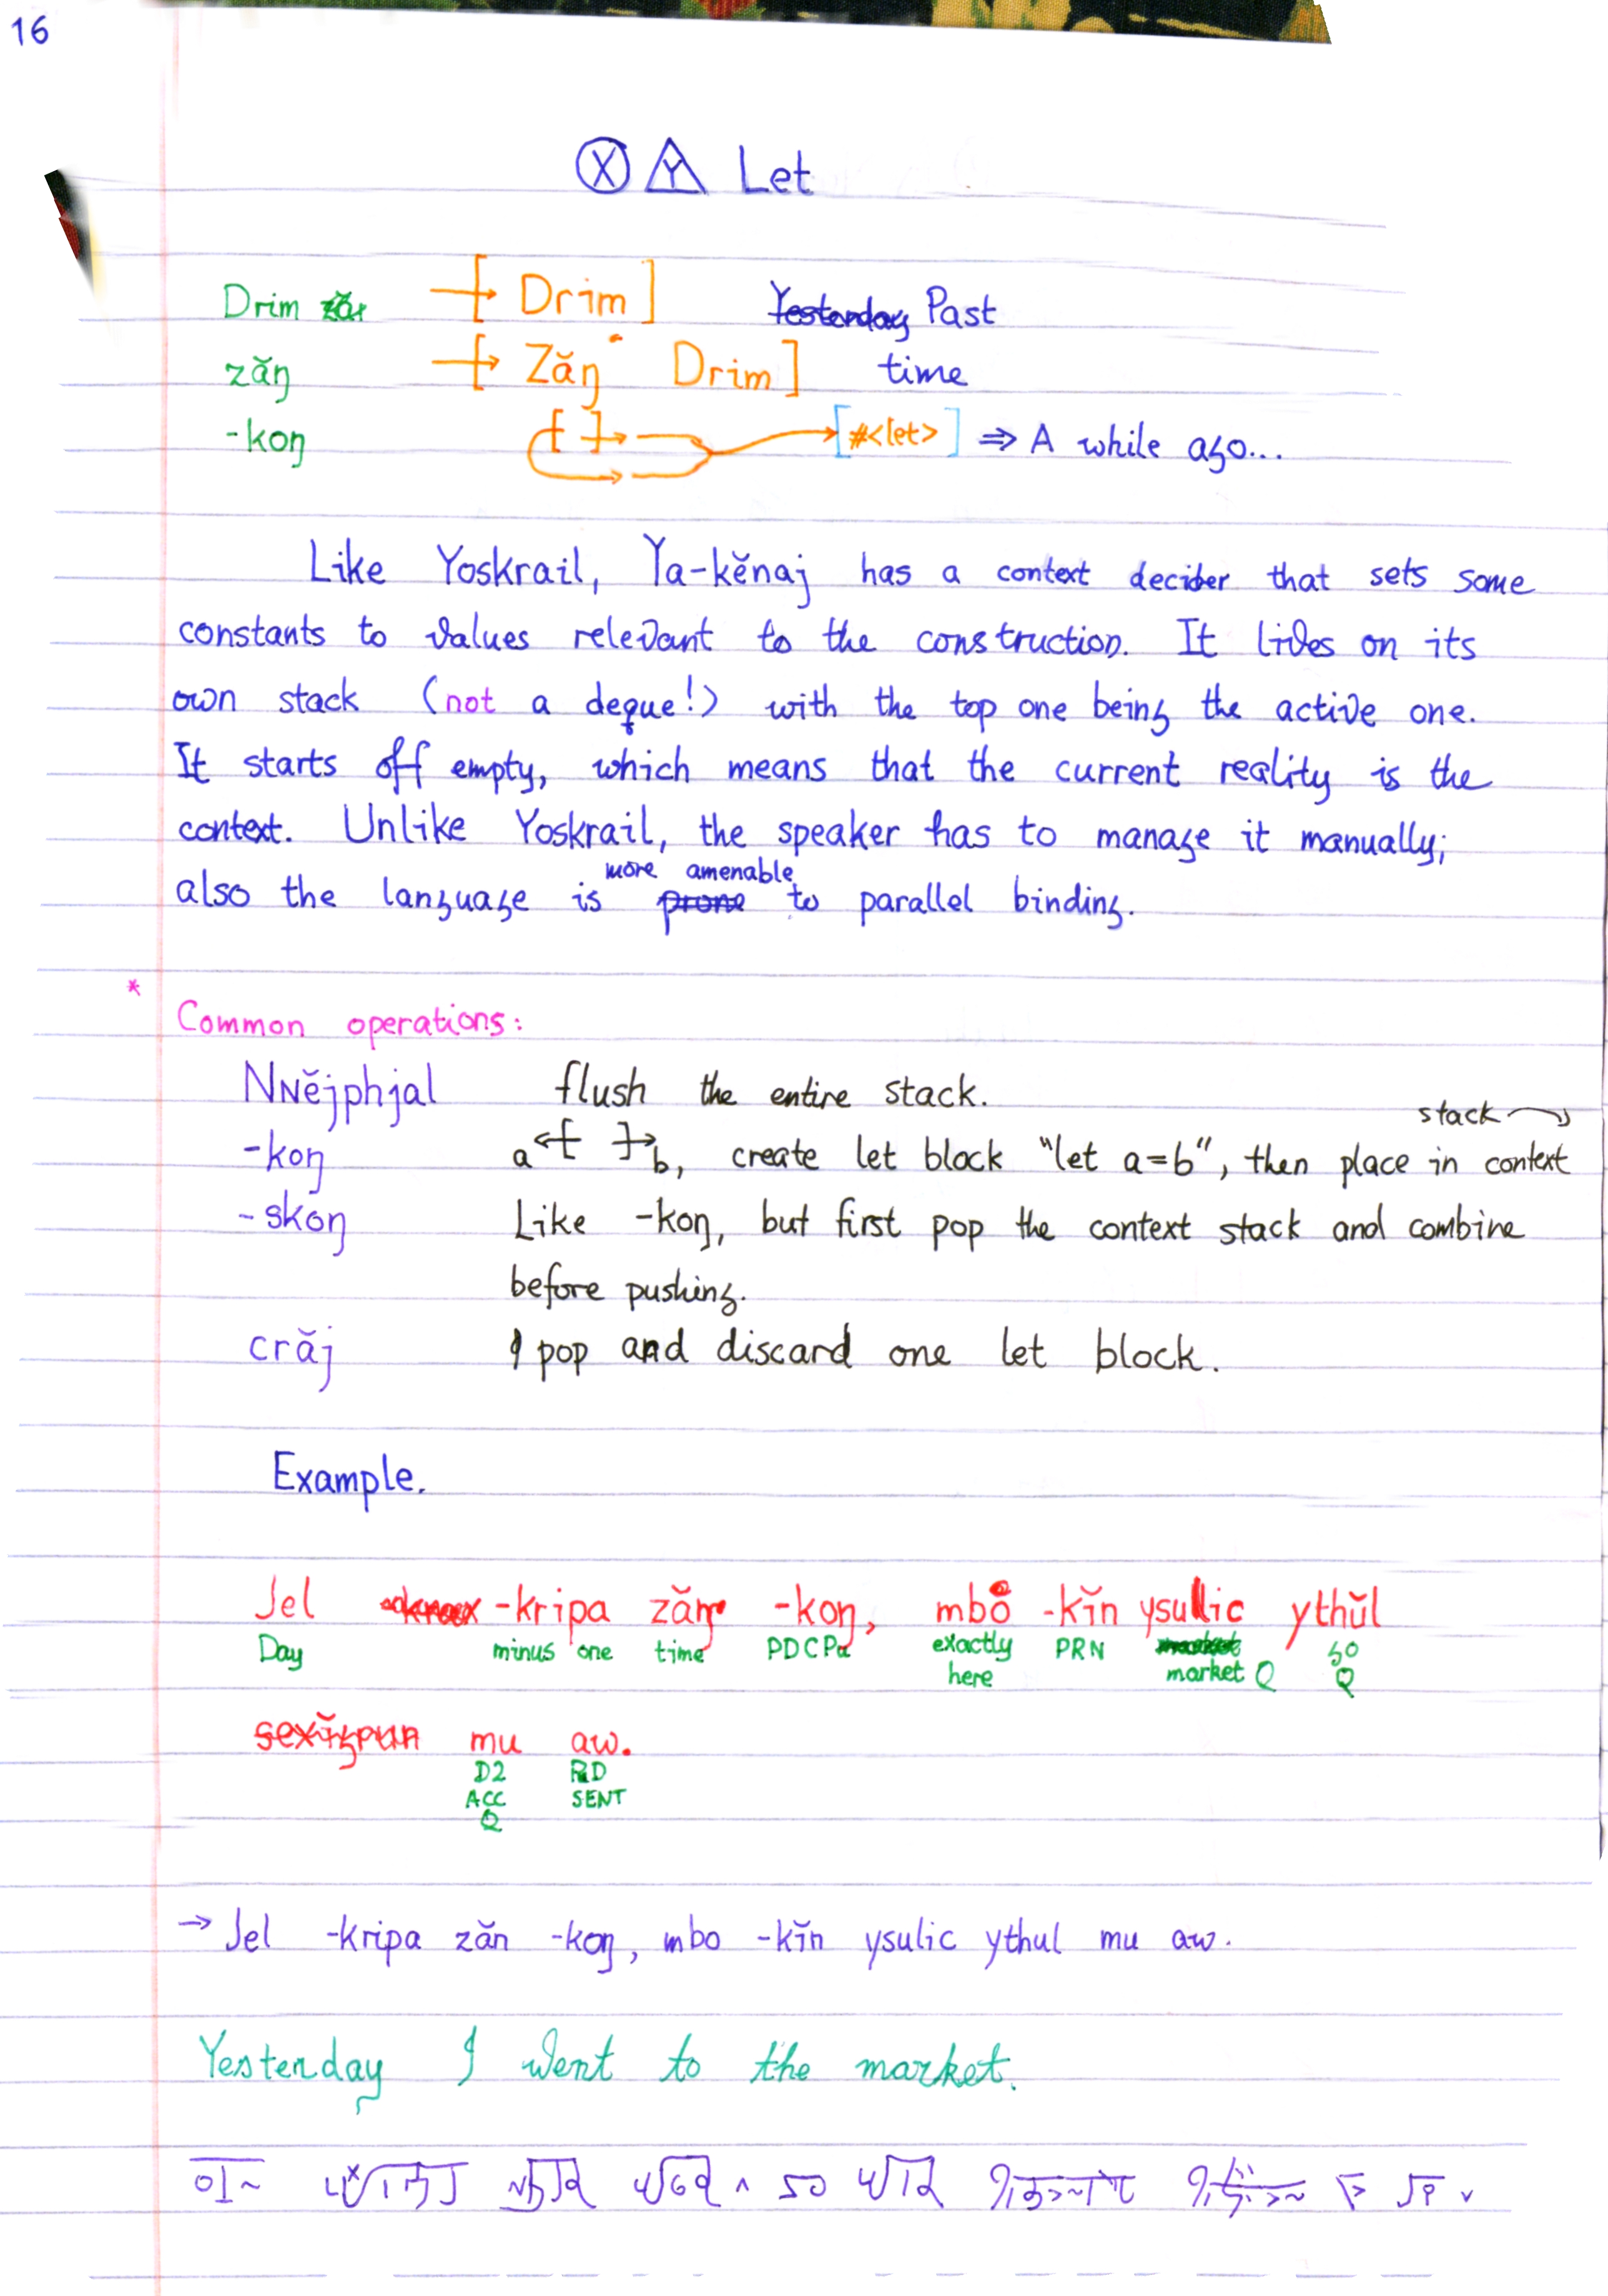 16
Ⓧ Y Let
Drim → [ Drim ] Past
zăŋ → [ Zăŋ Drim ] time
-koŋ [ ] → [#<let>] ⇒ A while ago...
Like Yoskrail, Ya-kĕnaj has a context decider that sets some
constants to values relevant to the construction. It lives on its
own stack (not a deque!) with the top one being the active one.
It starts off empty, which means that the current reality is the
context. Unlike Yoskrail, the speaker has to manage it manually;
more amenable
also the language is prone to parallel binding.
*
Common operations:
Nɴĕjphjal flush the entire stack.
stack
-koŋ a b, create let block "let a=b", then place in context
-skoŋ Like -koŋ, but first pop the context stack and combine
before pushing.
crăj pop and discard one let block.
Example.
Jel -kripa zăn -koŋ, mbo -kĭn ysulic ythŭl
Day minus one time PDCPa exactly PRN market Q go
here Q
mu aw.
D2 RD
ACC SENT
Q
→ Jel -kripa zăn -koŋ, mbo -kĭn ysulic ythul mu aw.
Yesterday I went to the market.